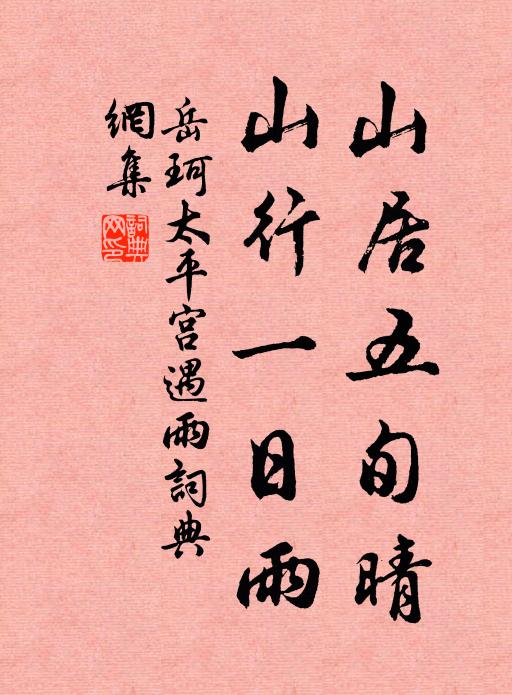 山居五旬晴
山行一日雨
岳珂太平宮遇雨詞典
網集
詞典網印